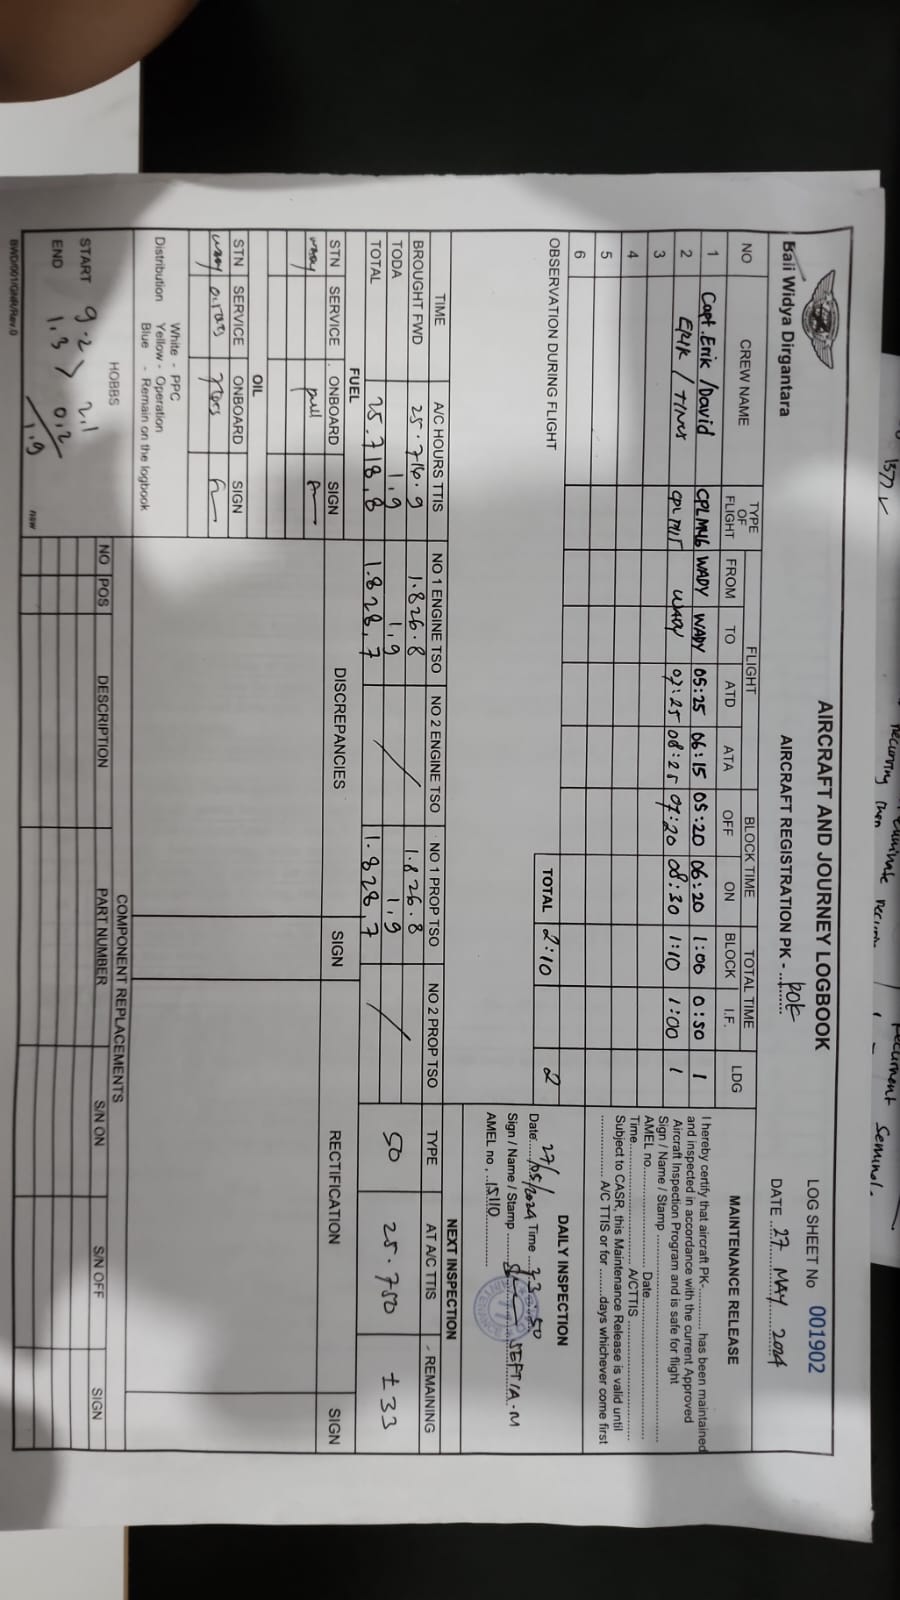 Bali Widya Dirgantara
AIRCRAFT AND JOURNEY LOGBOOK
AIRCRAFT REGISTRATION PK - ..........
LOG SHEET No 001902
DATE 27 MAY 2024
NO CREW NAME TYPE OF FLIGHT FLIGHT FROM TO ATD ATA BLOCK TIME OFF ON TOTAL TIME BLOCK I.F. LDG
1 Capt. Erik / David CPL M46 WADY WADY 05:25 06:15 05:20 06:20 1:00 0:50 1
2 ERIK / TINUS CPL WADY 07:25 08:25 07:20 08:30 1:10 1:00 1
3
4
5
6
OBSERVATION DURING FLIGHT
TOTAL 2:10 2
MAINTENANCE RELEASE
I hereby certify that aircraft PK-............ has been maintained
and inspected in accordance with the current Approved
Aircraft Inspection Program and is safe for flight
Sign / Name / Stamp
AMEL no. Date
Time A/CTTIS
Subject to CASR, this Maintenance Release is valid until
A/C TTIS or for ........days whichever come first
DAILY INSPECTION
Date: 27/05/2024 Time
Sign / Name / Stamp SEPTIA.M
AMEL no.
TIME A/C HOURS TTIS NO 1 ENGINE TSO NO 2 ENGINE TSO NO 1 PROP TSO NO 2 PROP TSO
BROUGHT FWD 25.716.9 1.826.8 1.826.8
TODA 1,9 1,9 1,9
TOTAL 25.718,8 1.828,7 1.828,7
NEXT INSPECTION
TYPE AT A/C TTIS REMAINING
50 25.750 ±33
FUEL
STN SERVICE ONBOARD SIGN
full
OIL
STN SERVICE ONBOARD SIGN
DISCREPANCIES SIGN RECTIFICATION SIGN
Distribution White - PPC
Yellow - Operation
Blue - Remain on the logbook
HOBBS
START 9.2 > 2.1
END 1.3 0.2
1.9
COMPONENT REPLACEMENTS
NO POS DESCRIPTION PART NUMBER S/N ON S/N OFF SIGN
BWD/001/GNR/Rev.0